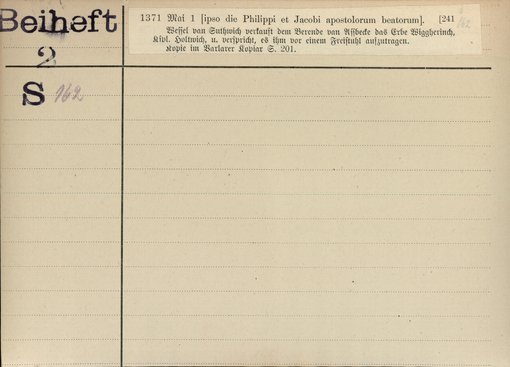 Beiheft
2
S 162
1371 Mai 1 [ipso die Philippi et Jacobi apostolorum beatorum]. [241
162
Wessel van Suthwich verkauft dem Berende van Assbeke das Erbe Wiggherinch,
Kspl. Holtwich, u. verspricht, es ihm vor einem Freistuhl aufzutragen.
Kopie im Varlarer Kopiar S. 201.